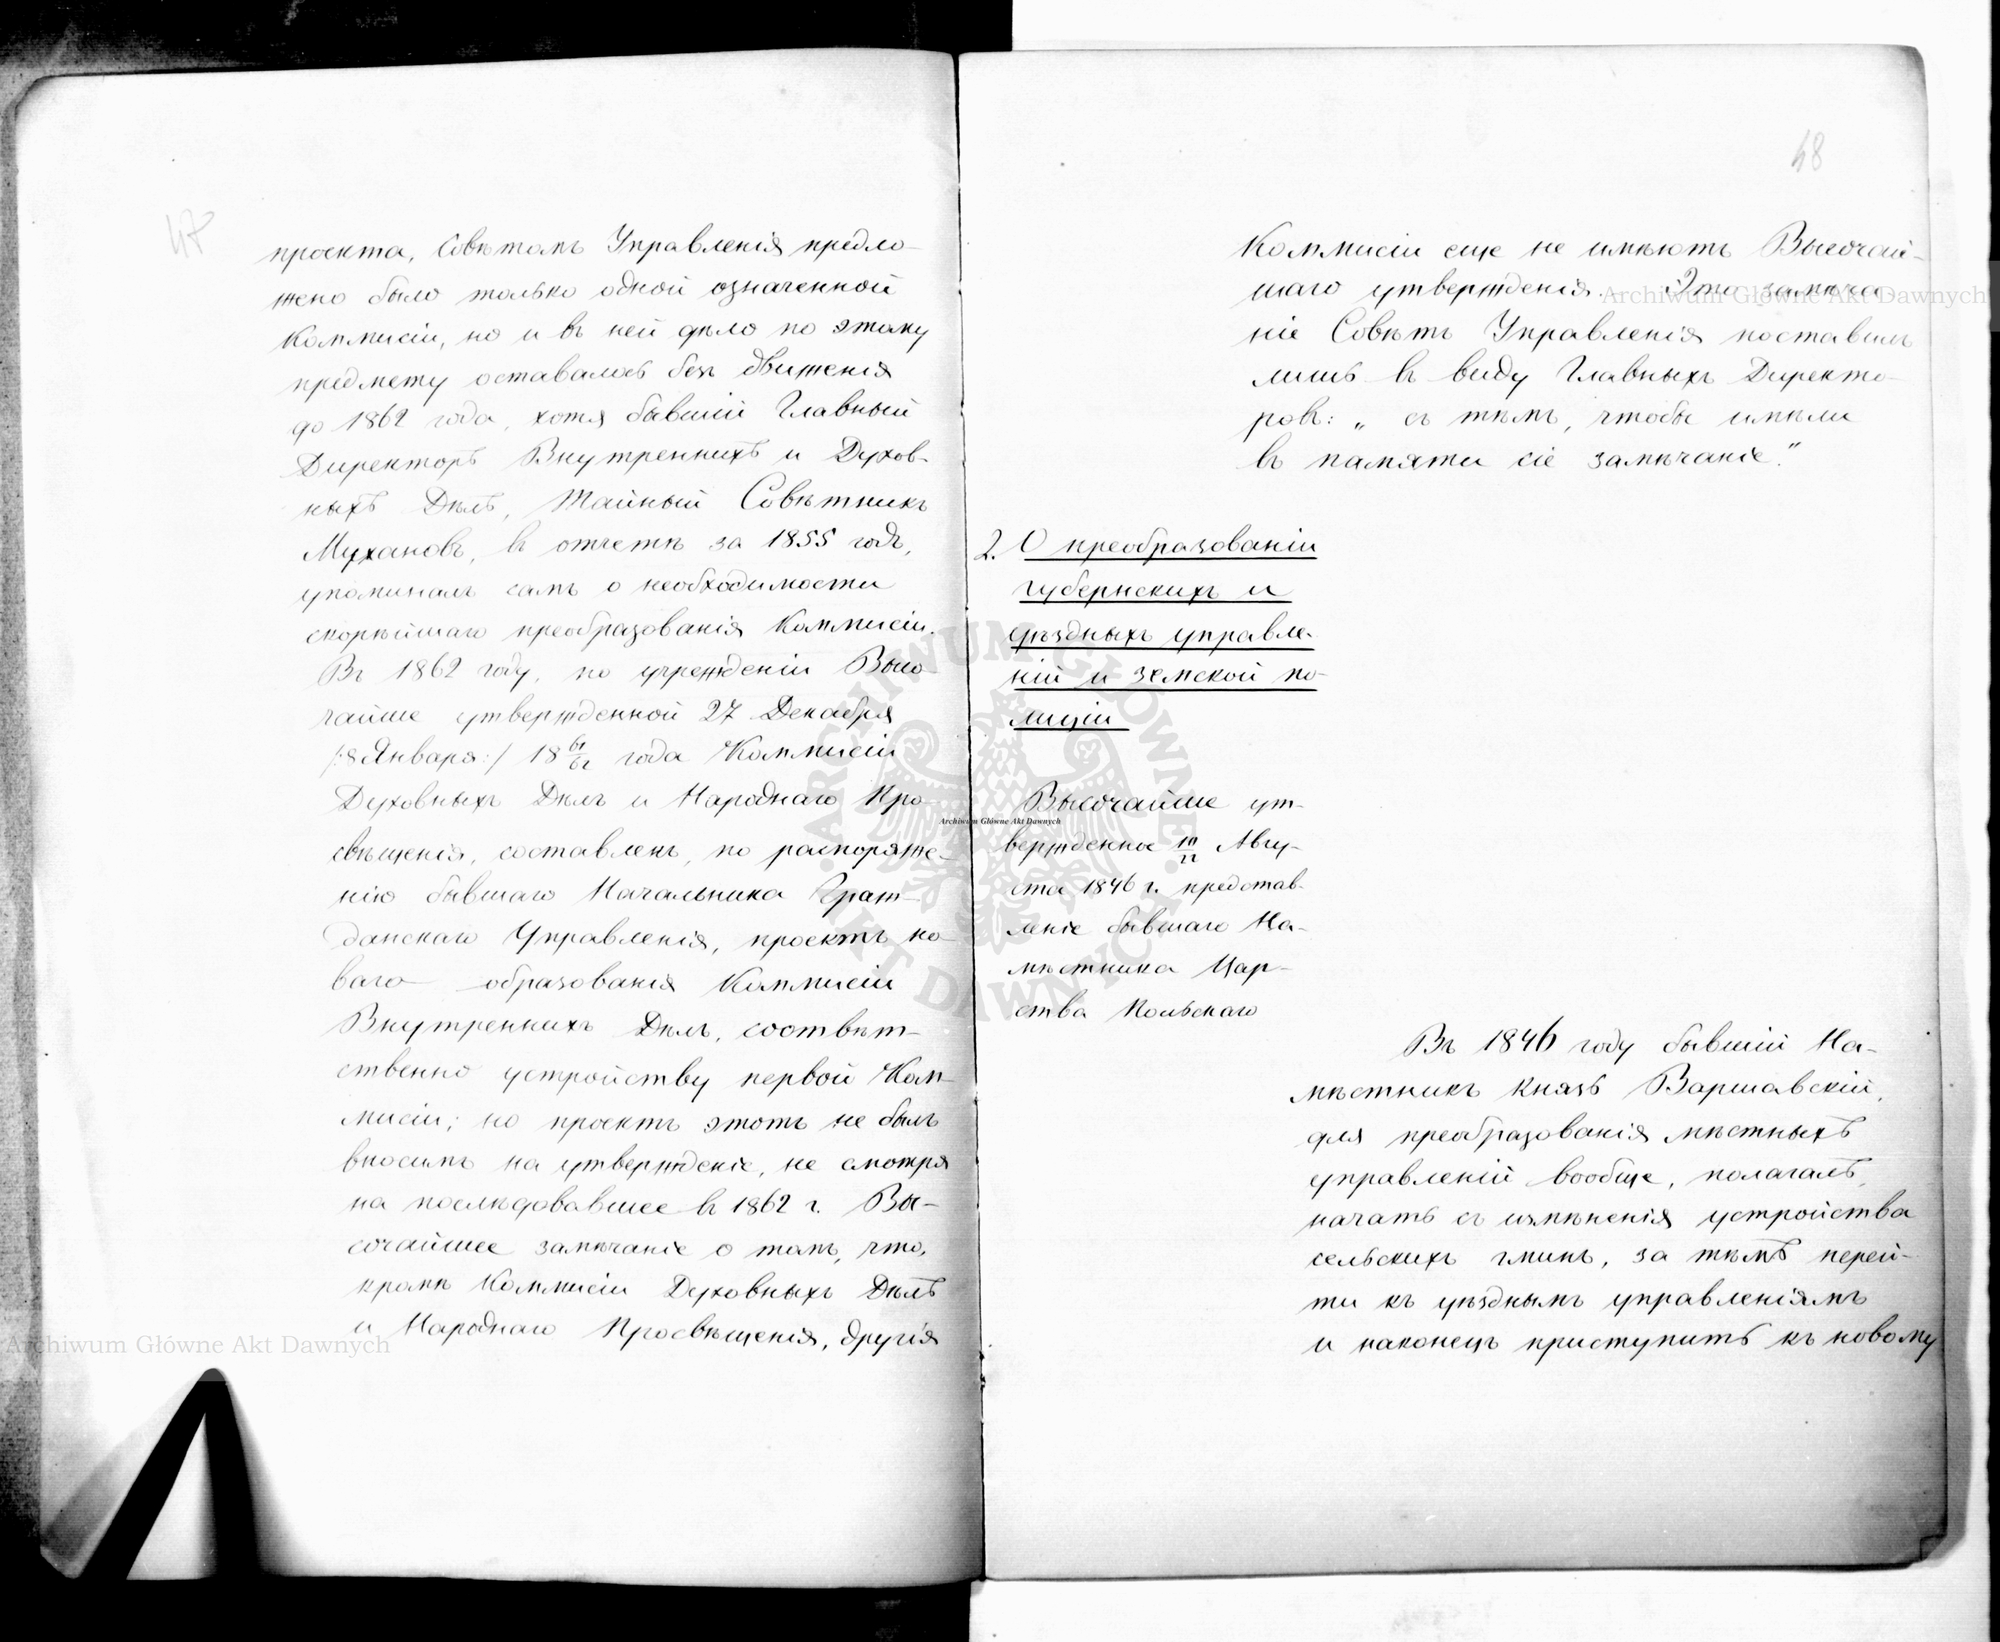 47
проекта, Совѣтомъ Управленія предло-
жено было только одной означенной
Коммисіи, но и въ ней дѣло по этому
предмету оставалось безъ движенія
до 1862 года, хотя бывшій Главный
Директоръ Внутреннихъ и Духов-
ныхъ Дѣлъ, Тайный Совѣтникъ
Мухановъ, въ отчетѣ за 1855 годъ,
упоминалъ самъ о необходимости
скорѣйшаго преобразованія Коммисіи.
Въ 1862 году, по учрежденіи Высо-
чайше утвержденной 27 Декабря
/:8 Января:/ 18 61/62 года Коммисіи
Духовныхъ Дѣлъ и Народнаго Про-
свѣщенія, составленъ, по распоряже-
нію бывшаго Начальника Граж-
данскаго Управленія, проектъ но-
ваго образованія Коммисіи
Внутреннихъ Дѣлъ, соотвѣт-
ственно устройству первой Ком-
мисіи; но проектъ этотъ не былъ
вносимъ на утвержденіе, не смотря
на послѣдовавшее въ 1862 г. Вы-
сочайшее замѣчаніе о томъ, что,
кромѣ Коммисіи Духовныхъ Дѣлъ
и Народнаго Просвѣщенія, другія
48
Коммисіи еще не имѣютъ Высочай-
шаго утвержденія. Это замѣча-
ніе Совѣтъ Управленія поставилъ
лишь въ виду Главныхъ Директо-
ровъ: „ съ тѣмъ, чтобы имѣли
въ памяти сіе замѣчаніе."
2. О преобразованіи
губернскихъ и
уѣздныхъ управле-
ній и земской по-
лиціи
Высочайше ут-
вержденное 10/22 Авгу-
ста 1846 г. представ-
леніе бывшаго На-
мѣстника Цар-
ства Польскаго
Въ 1846 году бывшій На-
мѣстникъ Князь Варшавскій,
для преобразованія мѣстныхъ
управленій вообще, полагалъ,
начать съ измѣненія устройства
сельскихъ гминъ, за тѣмъ перей-
ти къ уѣзднымъ управленіямъ
и наконецъ приступить къ новому
Archiwum Główne Akt Dawnych
Archiwum Główne Akt Dawnych
Archiwum Główne Akt Dawnych
ARCHIWUM GŁÓWNE AKT DAWNYCH